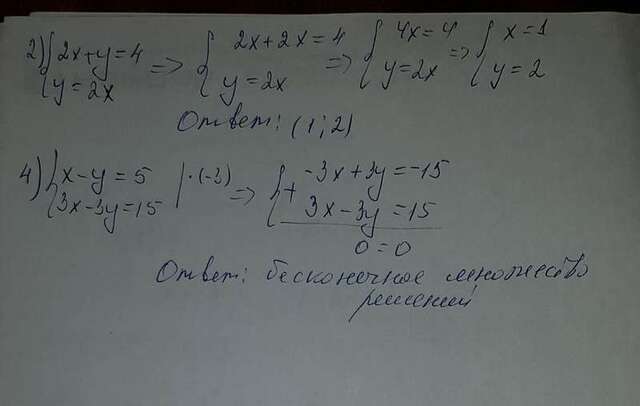 2) { 2x+y=4 => { 2x+2x=4 => { 4x=4 => { x=1
y=2x y=2x y=2x y=2
Ответ: (1;2)
4) { x-y=5 |·(-3) => { + -3x+3y=-15
3x-3y=15 3x-3y=15
0=0
Ответ: бесконечное множество
решений